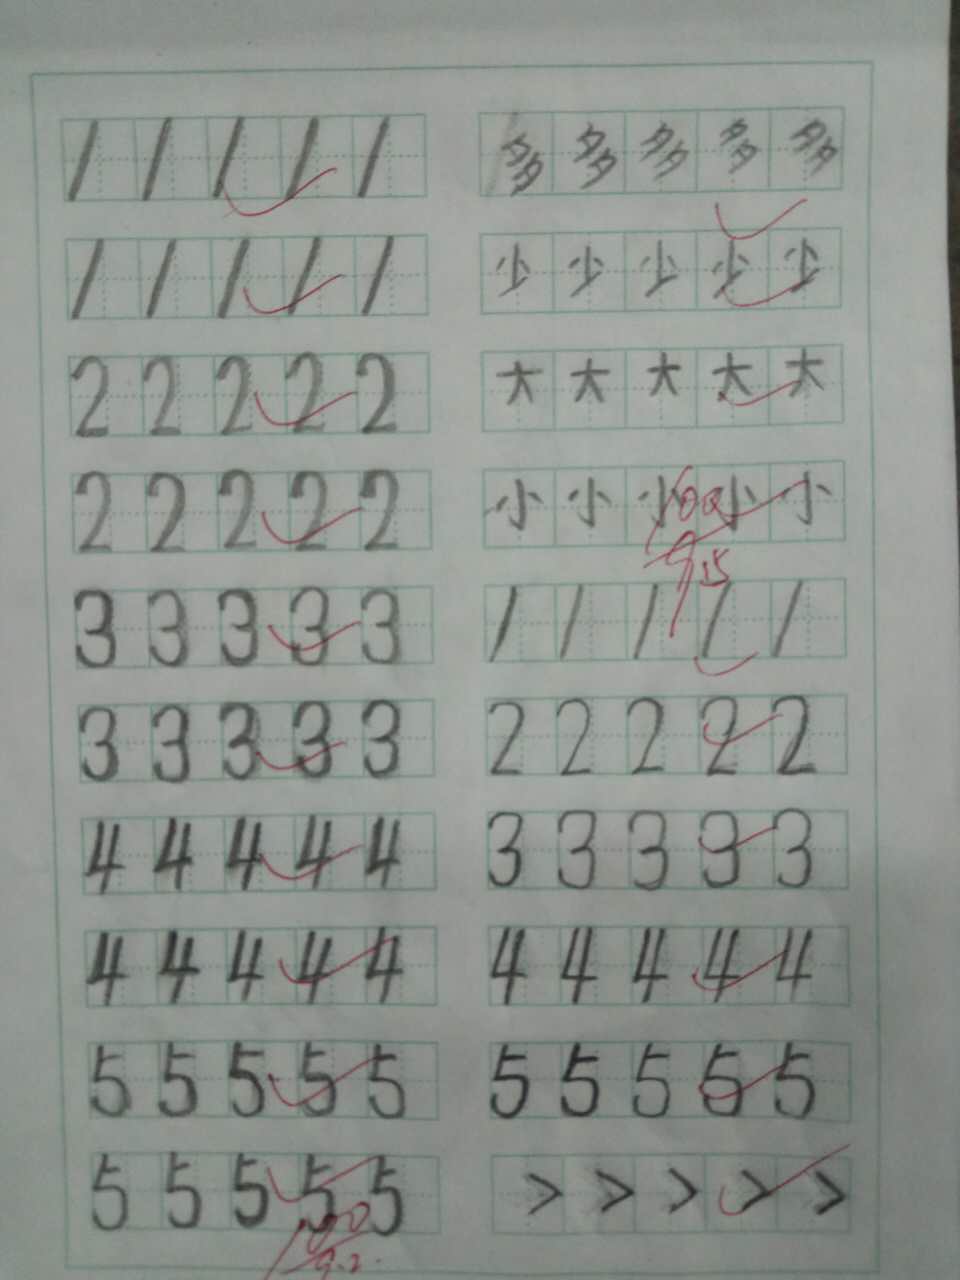 1 1 1 1 1
1 1 1 1 1
2 2 2 2 2
2 2 2 2 2
3 3 3 3 3
3 3 3 3 3
4 4 4 4 4
4 4 4 4 4
5 5 5 5 5
5 5 5 5 5
100
9.2.
多 多 多 多 多
少 少 少 少 少
大 大 大 大 大
小 小 小 小 小
100
9.15
1 1 1 1 1
2 2 2 2 2
3 3 3 3 3
4 4 4 4 4
5 5 5 5 5
> > > > >